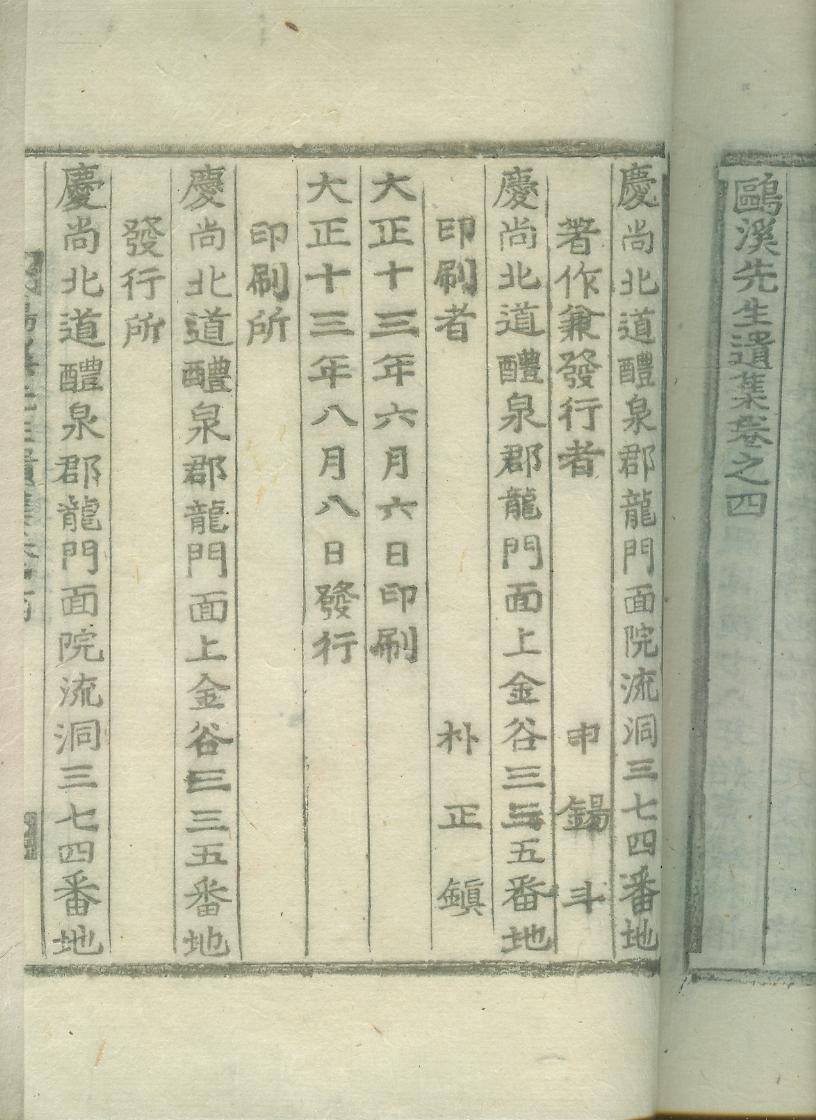 鷗溪先生遺集卷之四
慶尚北道醴泉郡龍門面院流洞三七四番地
著作兼發行者 申錫斗
慶尚北道醴泉郡龍門面上金谷三三五番地
印刷者 朴正鎭
大正十三年六月六日印刷
大正十三年八月八日發行
印刷所
慶尚北道醴泉郡龍門面上金谷三三五番地
發行所
慶尚北道醴泉郡龍門面院流洞三七四番地